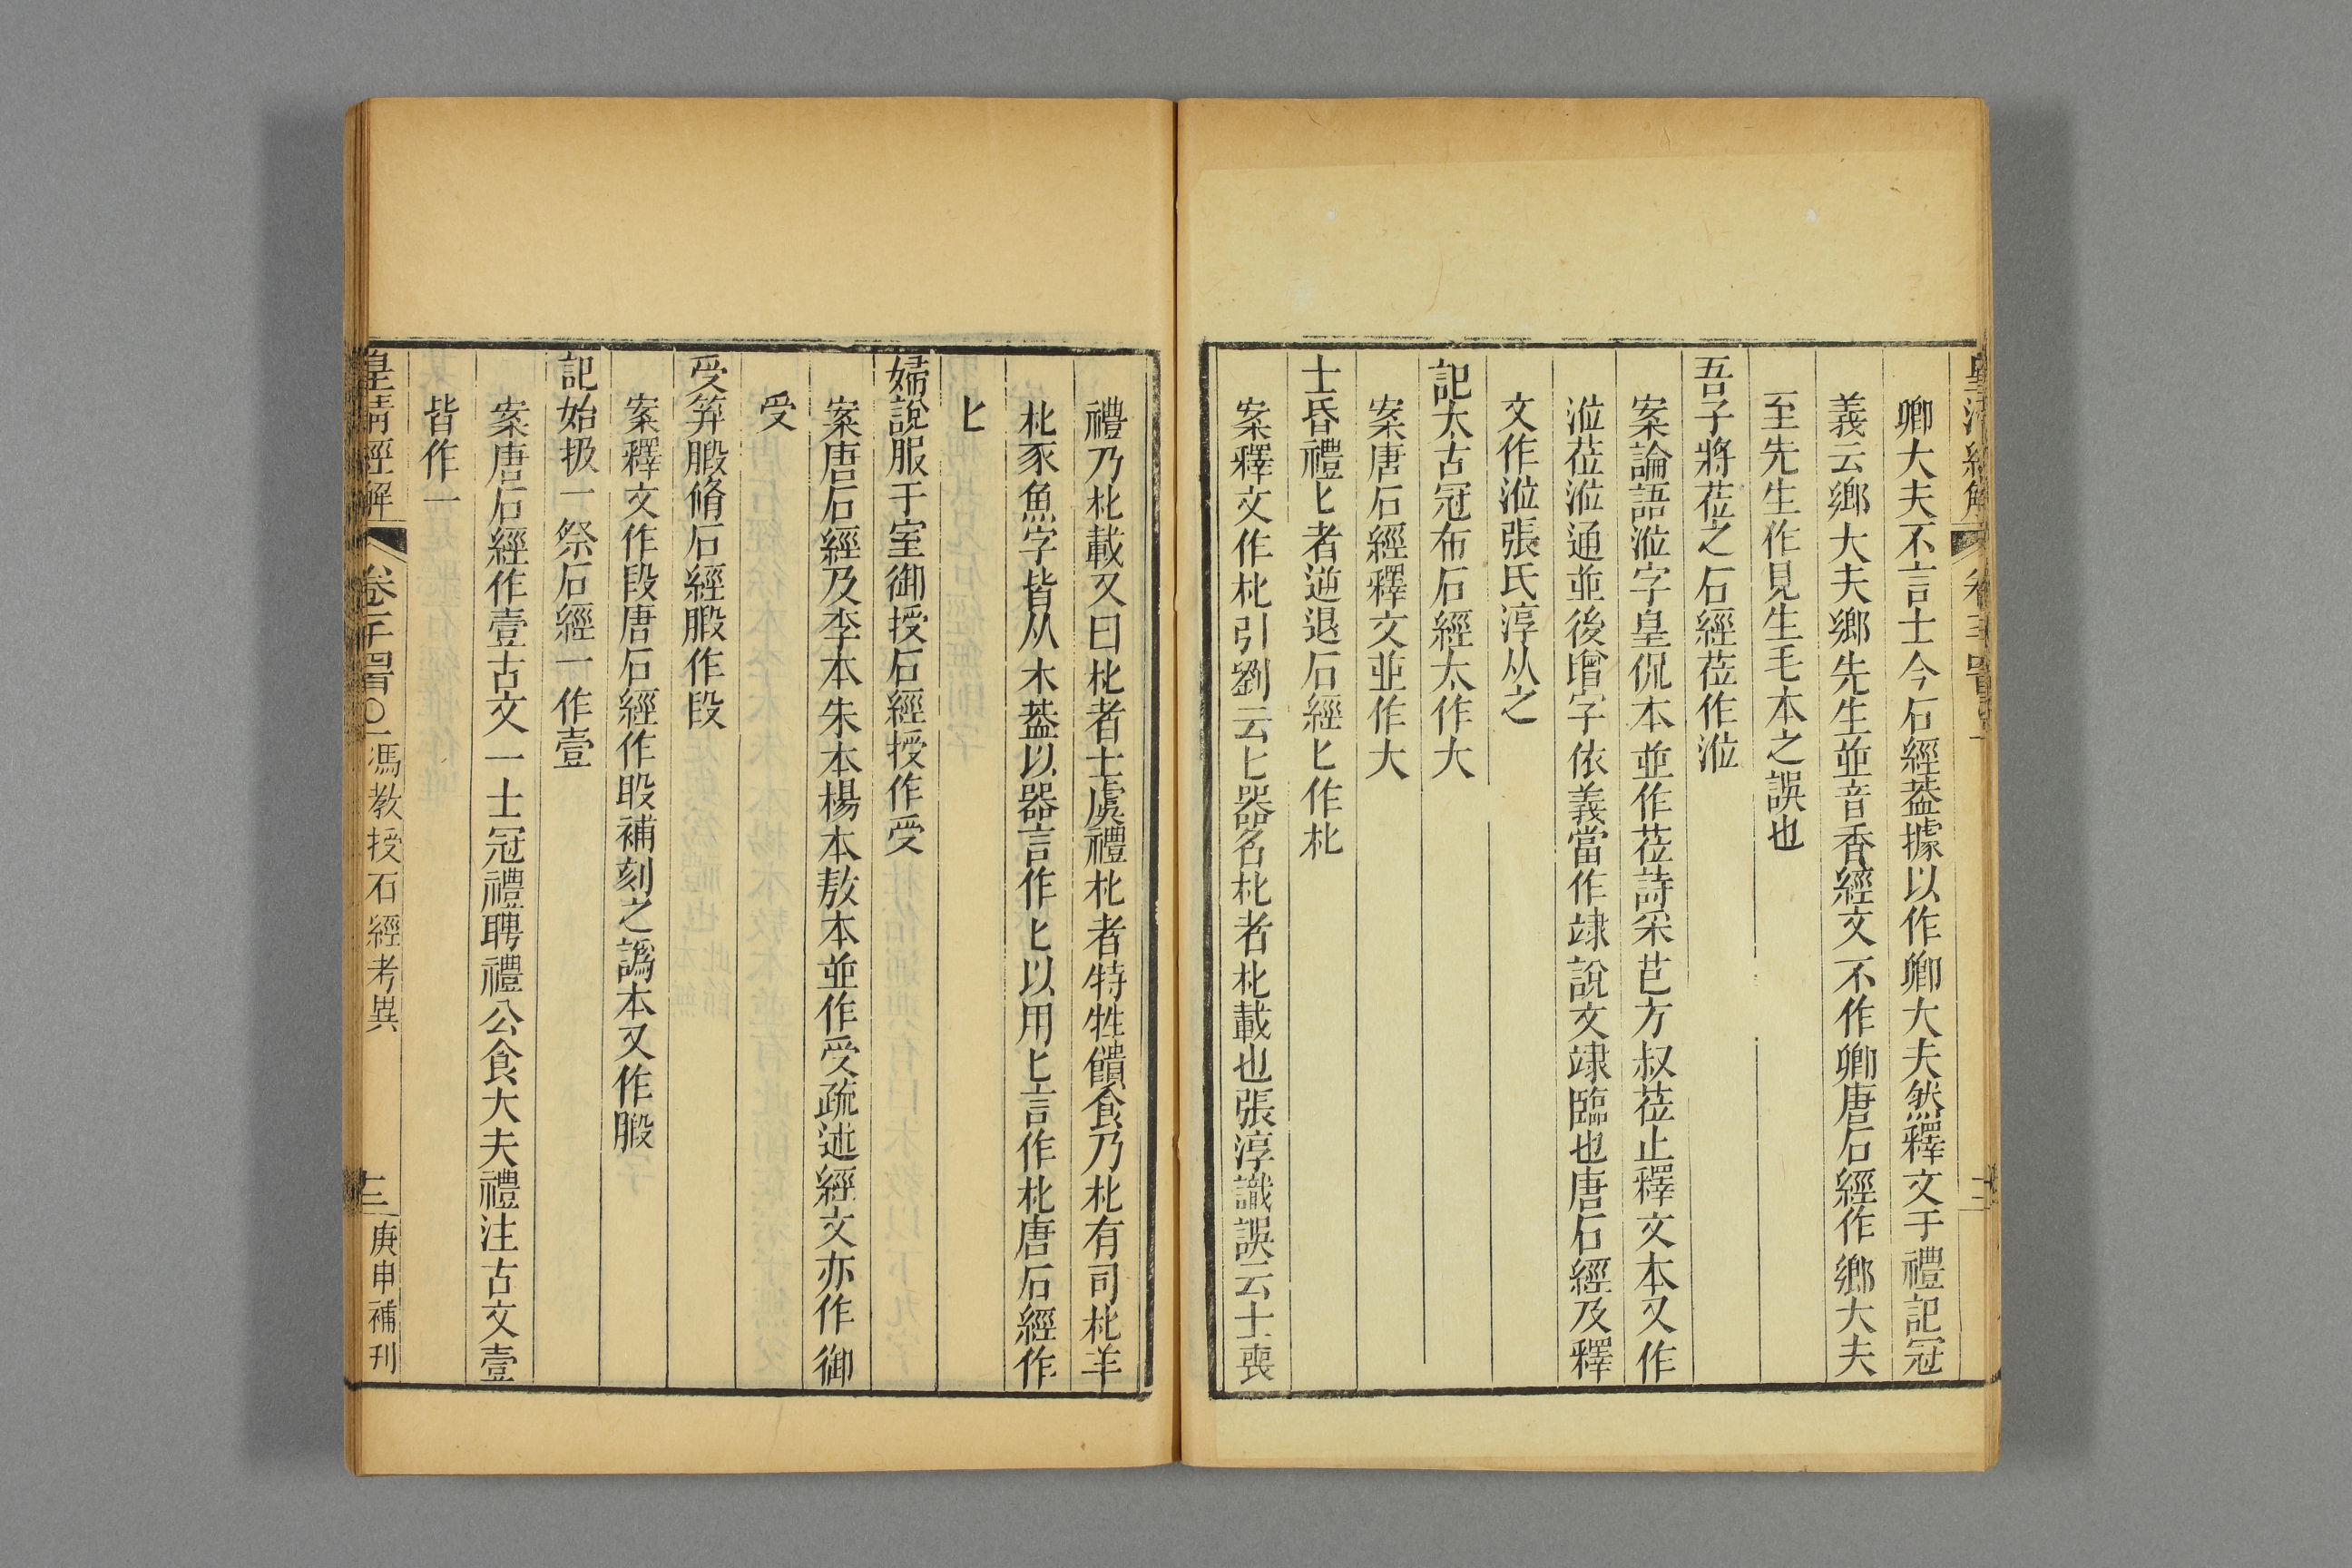 卿大夫不言士今石經葢據以作卿大夫然釋文于禮記冠
義云鄉大夫鄉先生並音香經文不作卿唐石經作鄉大夫
至先生作見生毛本之誤也
吾子將莅之石經莅作涖
案論語涖字皇侃本並作莅詩采芑方叔莅止釋文本又作
涖莅涖通並後增字依義當作竦說文竦臨也唐石經及釋
文作涖張氏淳从之
記太古冠布石經太作大
案唐石經釋文並作大
士昏禮匕者逆退石經匕作朼
案釋文作朼引劉云匕器名朼者朼載也張淳識誤云士喪
禮乃朼載又曰朼者士虞禮朼者特牲饋食乃朼有司朼羊
朼豕魚字皆从木葢以器言作匕以用匕言作朼唐石經作
匕
婦說服于室御授石經授作受
案唐石經及李本朱本楊本敖本並作受疏述經文亦作御
受
受笲腶脩石經腶作段
案釋文作段唐石經作毀補刻之譌本又作腶
記始扱一祭石經一作壹
案唐石經作壹古文一士冠禮聘禮公食大夫禮注古文壹
皆作一
皇清經解
卷一千四百〇一
馮教授石經考異
三
庚申補刊